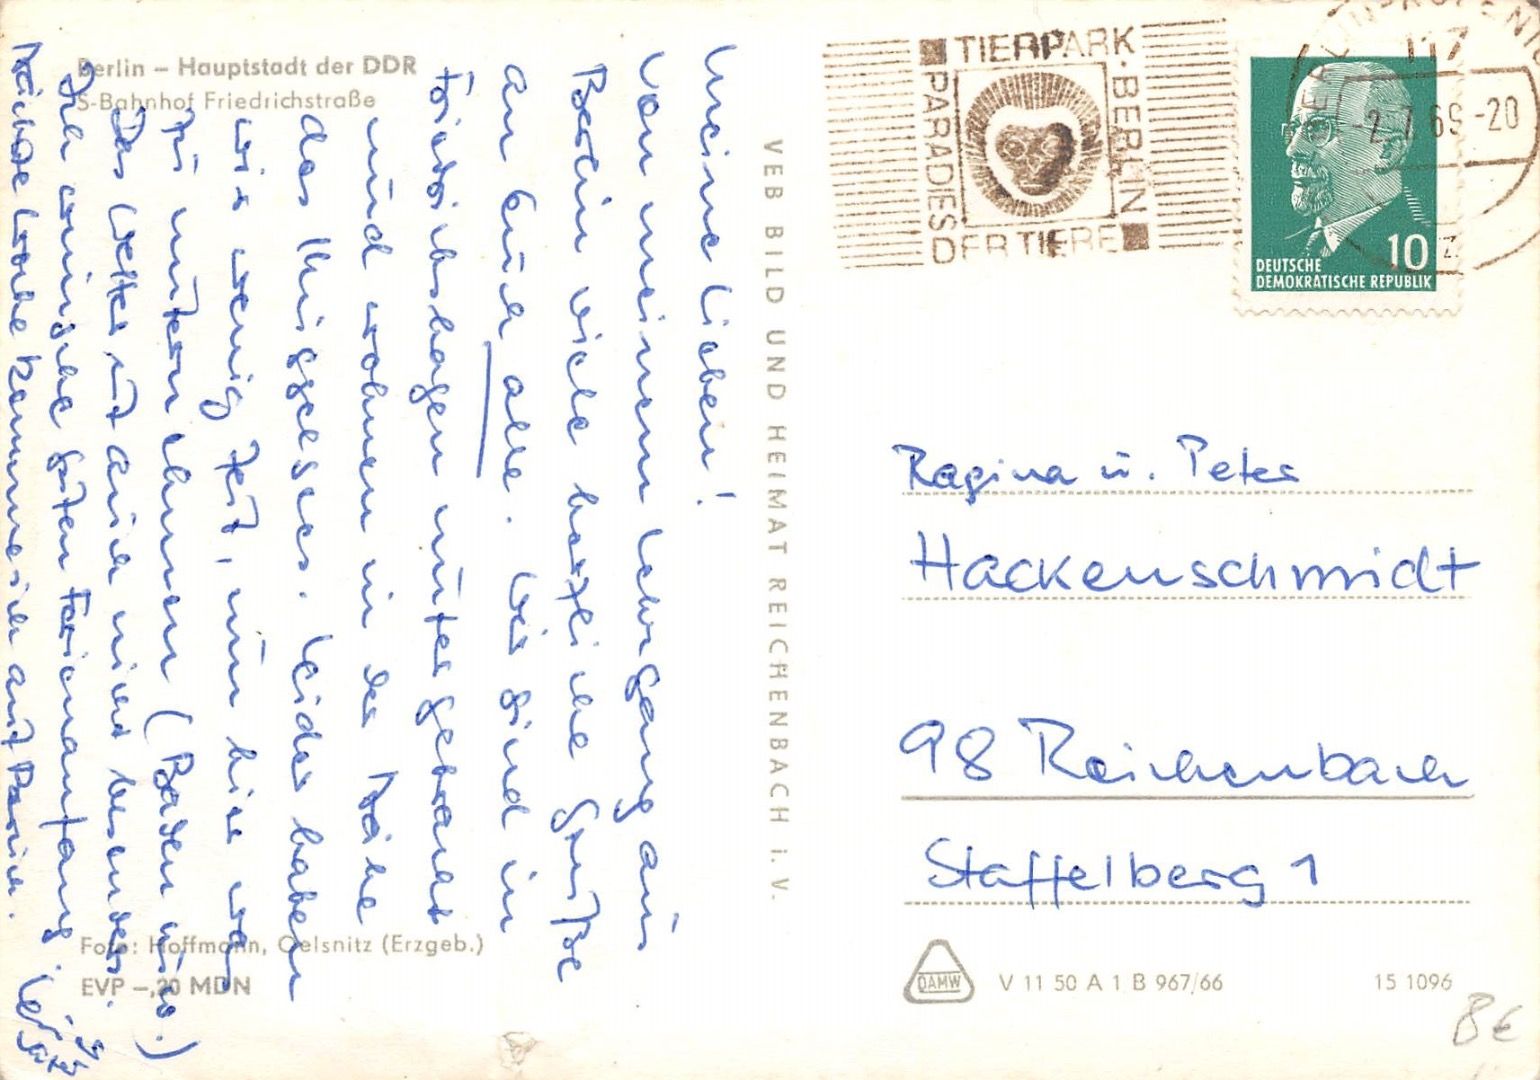 Berlin – Hauptstadt der DDR
S-Bahnhof Friedrichstraße
Meine Lieben!
Von meinem Lehrgang aus
Berlin viele herzliche Grüße
an Euch alle. Wir sind in
Friedrichshagen untergebracht
und wohnen in der Nähe
des Müggelsees. Leider haben
wir wenig Zeit, um hier was
zu unternehmen (Baden usw.)
Das Wetter ist auch nicht besonders.
Ich wünsche guten Ferienanfang.
Nächste Woche komme ich auf
Foto: Hoffmann, Oelsnitz (Erzgeb.)
EVP –,20 MDN
VEB BILD UND HEIMAT REICHENBACH i. V.
TIERPARK · BERLIN
PARADES
DER TIERE
117
-2.7.69-20
10
DEUTSCHE
DEMOKRATISCHE REPUBLIK
Regina u. Peter
Hackenschmidt
98 Reichenbach
Staffelberg 1
DAMW
V 11 50 A 1 B 967/66
15 1096
8€